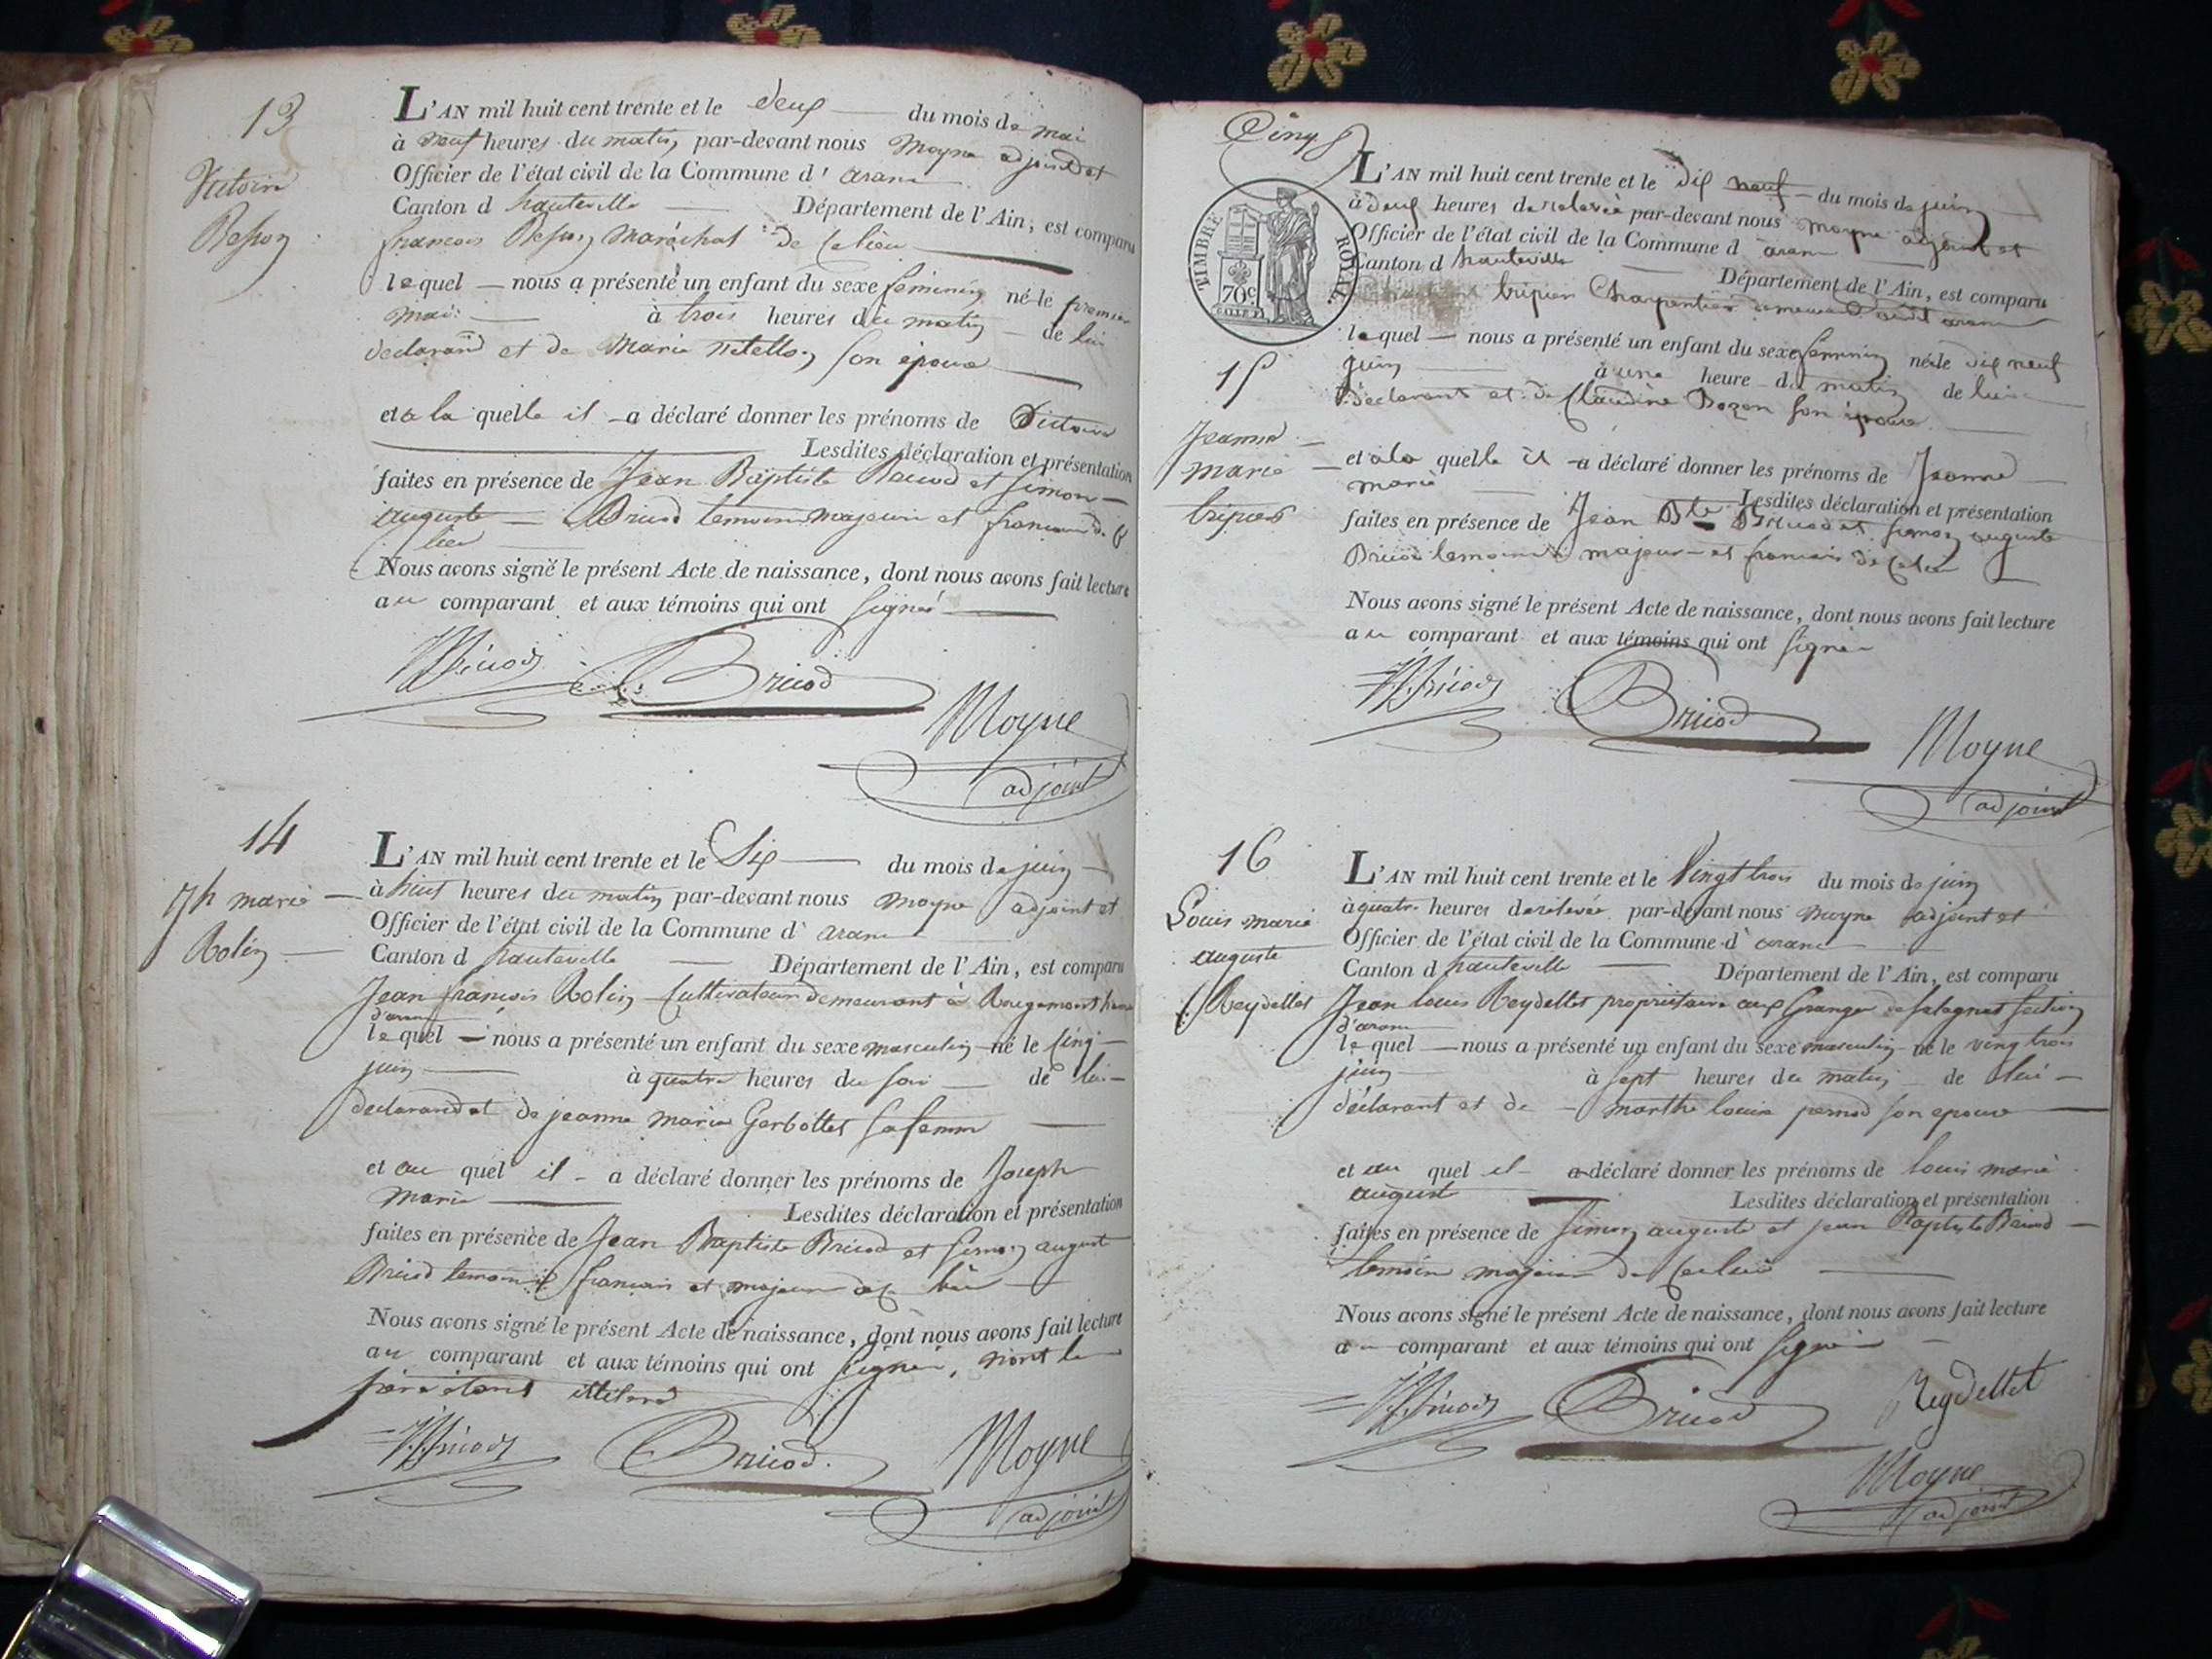 13
Victoire
Besson
L'AN mil huit cent trente et le deux du mois de mai
à neuf heures du matin par-devant nous Moyne adjoint et
Officier de l'état civil de la Commune d' aranc
Canton d hauteville Département de l'Ain, est comparu
francois Besson Maréchal de ce lieu
le quel nous a présenté un enfant du sexe feminin né le premier
mai à trois heures du matin de lui
declarand et de Marie son épouse
et a la quelle il a déclaré donner les prénoms de Victoire
Lesdites déclaration et présentation
faites en présence de Jean Baptiste Bricod et Simon
auguste Bricod temoins majeurs et francais de ce
lieu
Nous avons signé le présent Acte de naissance, dont nous avons fait lecture
au comparant et aux témoins qui ont signés
Bricod Bricod
Moyne
adjoint
14
Jh marie
Rolin
L'AN mil huit cent trente et le Six du mois de juin
à huit heures du matin par-devant nous moyne adjoint et
Officier de l'état civil de la Commune d' aranc
Canton d hauteville Département de l'Ain, est comparu
Jean françois Rolin Cultivateur demeurant à Rougemont
d'aranc
le quel nous a présenté un enfant du sexe masculin né le cinq
juin à quatre heures du soir de lui
declarand et de jeanne marie Gerbollet sa femme
et au quel il a déclaré donner les prénoms de Joseph
marie
Lesdites déclaration et présentation
faites en présence de Jean Baptiste Bricod et Simon august
Bricod temoins francais et majeurs de ce lieu
Nous avons signé le présent Acte de naissance, dont nous avons fait lecture
au comparant et aux témoins qui ont signé, non le
père étant illiteré
Bricod Bricod Moyne
adjoint
Cinq
TIMBRE ROYAL.
70c
15
Jeanne
marie
tripier
L'AN mil huit cent trente et le dix neuf du mois de juin
à deux heures de relevée par-devant nous moyne adjoint et
Officier de l'état civil de la Commune d aranc
Canton d hauteville Département de l'Ain, est comparu
tripier Charpentier demeurant audit aranc
le quel nous a présenté un enfant du sexe feminin né le dix neuf
juin à une heure du matin de lui
declarant et de Claudine Bozon son épouse
et à la quelle il a déclaré donner les prénoms de Jeanne
marie
Lesdites déclaration et présentation
faites en présence de Jean Bte Bricod et Simon auguste
Bricod temoins majeurs et francais de ce lieu
Nous avons signé le présent Acte de naissance, dont nous avons fait lecture
au comparant et aux témoins qui ont signé
Bricod Bricod
Moyne
adjoint
16
Louis marie
auguste
Reydellet
L'AN mil huit cent trente et le Vingt trois du mois de juin
à quatre heures de relevée par-devant nous moyne adjoint et
Officier de l'état civil de la Commune d' aranc
Canton d hauteville Département de l'Ain, est comparu
Jean louis Reydellet propriétaire aux Granges de section
d'aranc
le quel nous a présenté un enfant du sexe masculin né le vingt trois
juin à sept heures du matin de lui
déclarant et de marthe louise pernod son epouse
et au quel il a déclaré donner les prénoms de louis marie
auguste
Lesdites déclaration et présentation
faites en présence de Simon auguste et jean Baptiste Bricod
temoins majeurs de ce lieu
Nous avons signé le présent Acte de naissance, dont nous avons fait lecture
au comparant et aux témoins qui ont signé
Bricod Bricod Reydellet
Moyne
adjoint